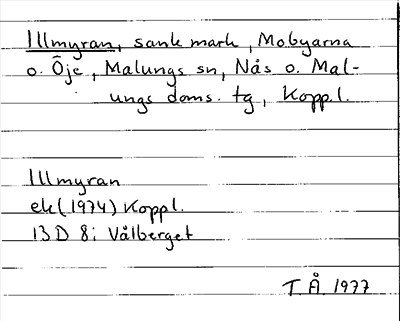 Illmyran, sank mark, Mobyarna
o. Öje, Malungs sn, Nås o. Mal-
ungs doms. tg, Koppl.
Illmyran
ek (1974) Koppl.
13 D 8i Vålberget
T.Å. 1977